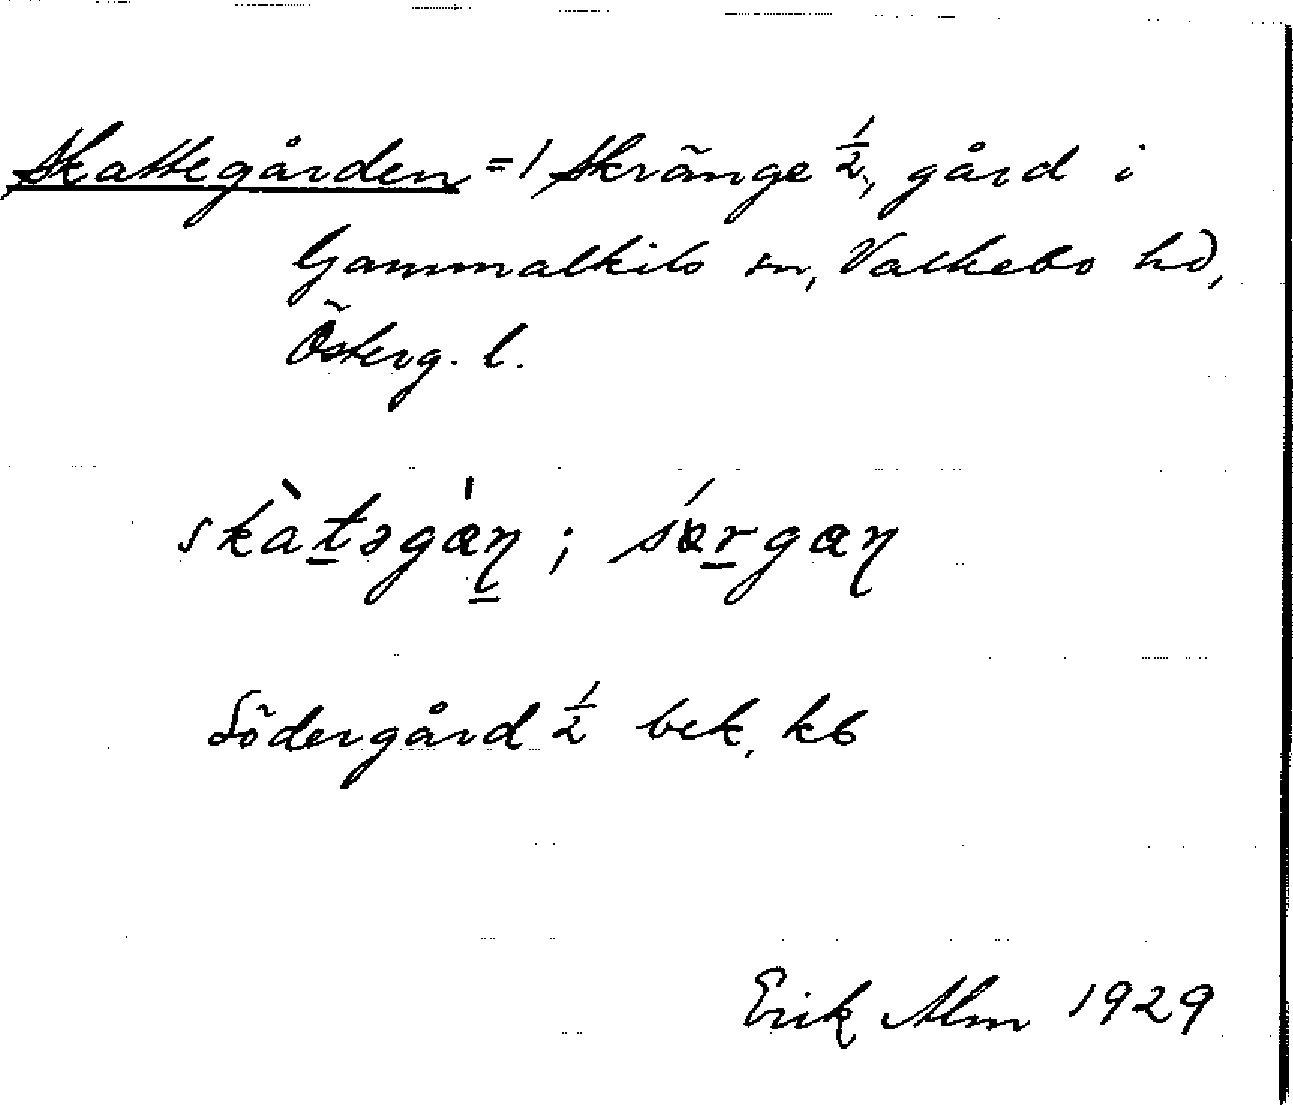 Skattegården = 1 Skränge ½, gård i
Gammalkils sn, Valkebo hd,
Österg. l.
skàt̲əgæ̀ɳ̲ ; sǽr̲gæɳ
Södergård ½ bek. kb
Erik Alm 1929